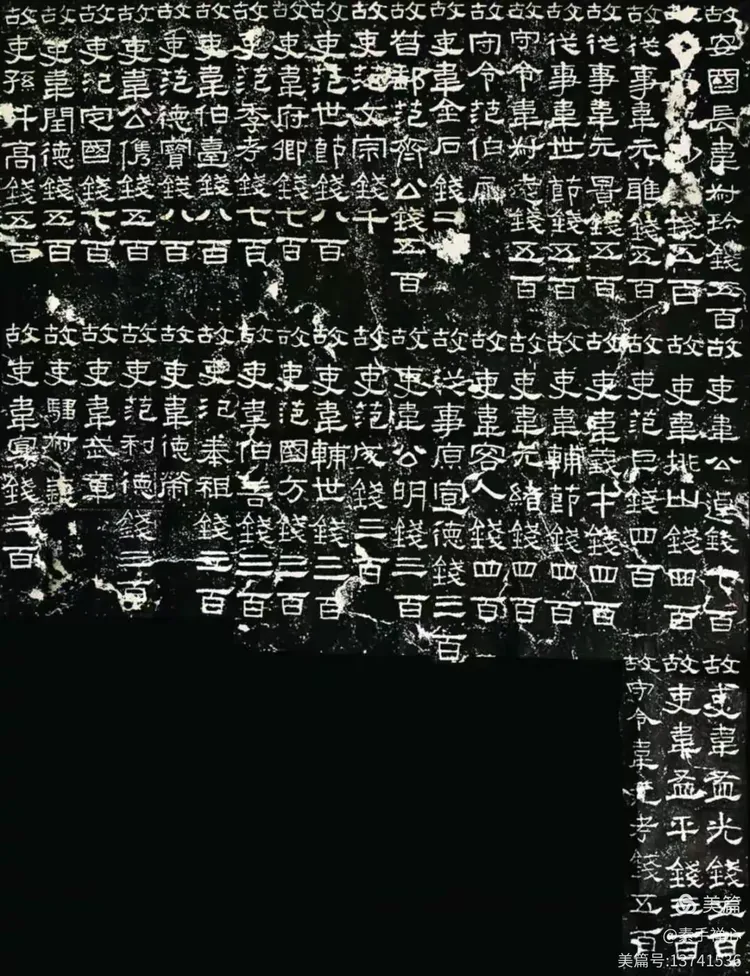 故安國長韋叔珍錢五百
故從事韋錢五百
故從事韋元雅錢五百
故從事韋元景錢五百
故從事韋世節錢五百
故守令韋叔遠錢五百
故守令范伯犀
故吏韋金石錢二
故督郵范齊公錢五百
故吏范文宗錢千
故吏范世節錢八百
故吏韋府卿錢七百
故吏范季考錢七百
故吏韋伯臺錢八百
故吏范德寶錢八百
故吏韋公儁錢五百
故吏氾定國錢七百
故吏韋閏德錢五百
故吏孫升高錢五百
故吏韋公逴錢七百
故吏韋排山錢四百
故吏范巨錢四百
故吏韋義才錢四百
故吏韋輔節錢四百
故吏韋元緒錢四百
故吏韋容人錢四百
故從事原宣德錢三百
故吏韋公明錢三百
故吏范成錢三百
故吏韋輔世錢三百
故吏范國方錢三百
故吏韋伯善錢三百
故吏氾奉祖錢三百
故吏韋德榮
故吏范利德錢三百
故吏韋武章
故吏騶叔義
故吏韋宣錢三百
故吏韋孟光錢五百
故吏韋孟平錢百
故守令韋元考錢五百
美篇
@素手禅心
美篇号:13741536